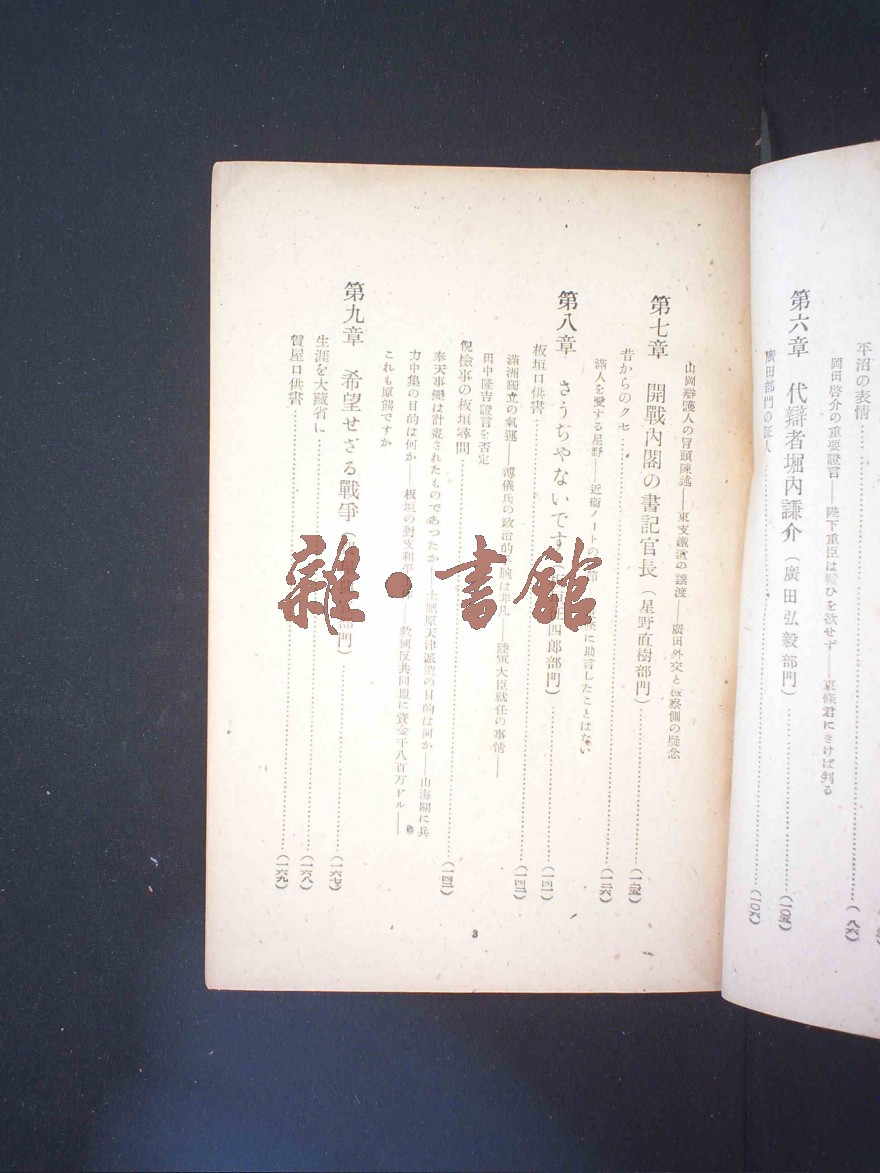 平沼の表情
(八六)
岡田啓介の重要證言——陛下重臣は戰ひを欲せず——東條君にきけば判る
第六章 代辯者堀內謙介(廣田弘毅部門)
(一〇五)
廣田部門の証人
(一〇六)
山岡辯護人の冒頭陳述——東支鐵道の讓渡——廣田外交と檢察側の疑念
第七章 開戰內閣の書記官長(星野直樹部門)
(一二五)
昔からのクセ
(一二六)
滿人を愛する星野——近衞ノートの 節 に助言したことはない
第八章 さうぢやないです 四郎部門)
(一四一)
板垣口供書
(一四二)
滿洲獨立の氣運——溥儀氏の政治的手腕は 陸軍大臣就任の事情——
田中隆吉證言を否定
倪檢事の板垣尋問
(一四二)
奉天事變は計畫されたものであつたか——土肥原天津派遣の目的は何か——山海關に兵
力中集の目的は何か——板垣の對支和平 ——救國反共同盟に資金千八百万ドル——
これも原熊ですか
第九章 希望せざる戰爭( 部門)
(一六七)
生涯を大藏省に
(一六八)
賀屋口供書
(一六九)
3
雜・書館